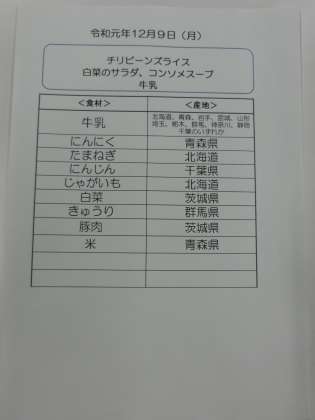 令和元年12月9日（月）
チリビーンズライス
白菜のサラダ、コンソメスープ
牛乳
＜食材＞ ＜産地＞
牛乳 北海道、青森、岩手、宮城、山形
埼玉、栃木、群馬、神奈川、静岡
千葉のいずれか
にんにく 青森県
たまねぎ 北海道
にんじん 千葉県
じゃがいも 北海道
白菜 茨城県
きゅうり 群馬県
豚肉 茨城県
米 青森県